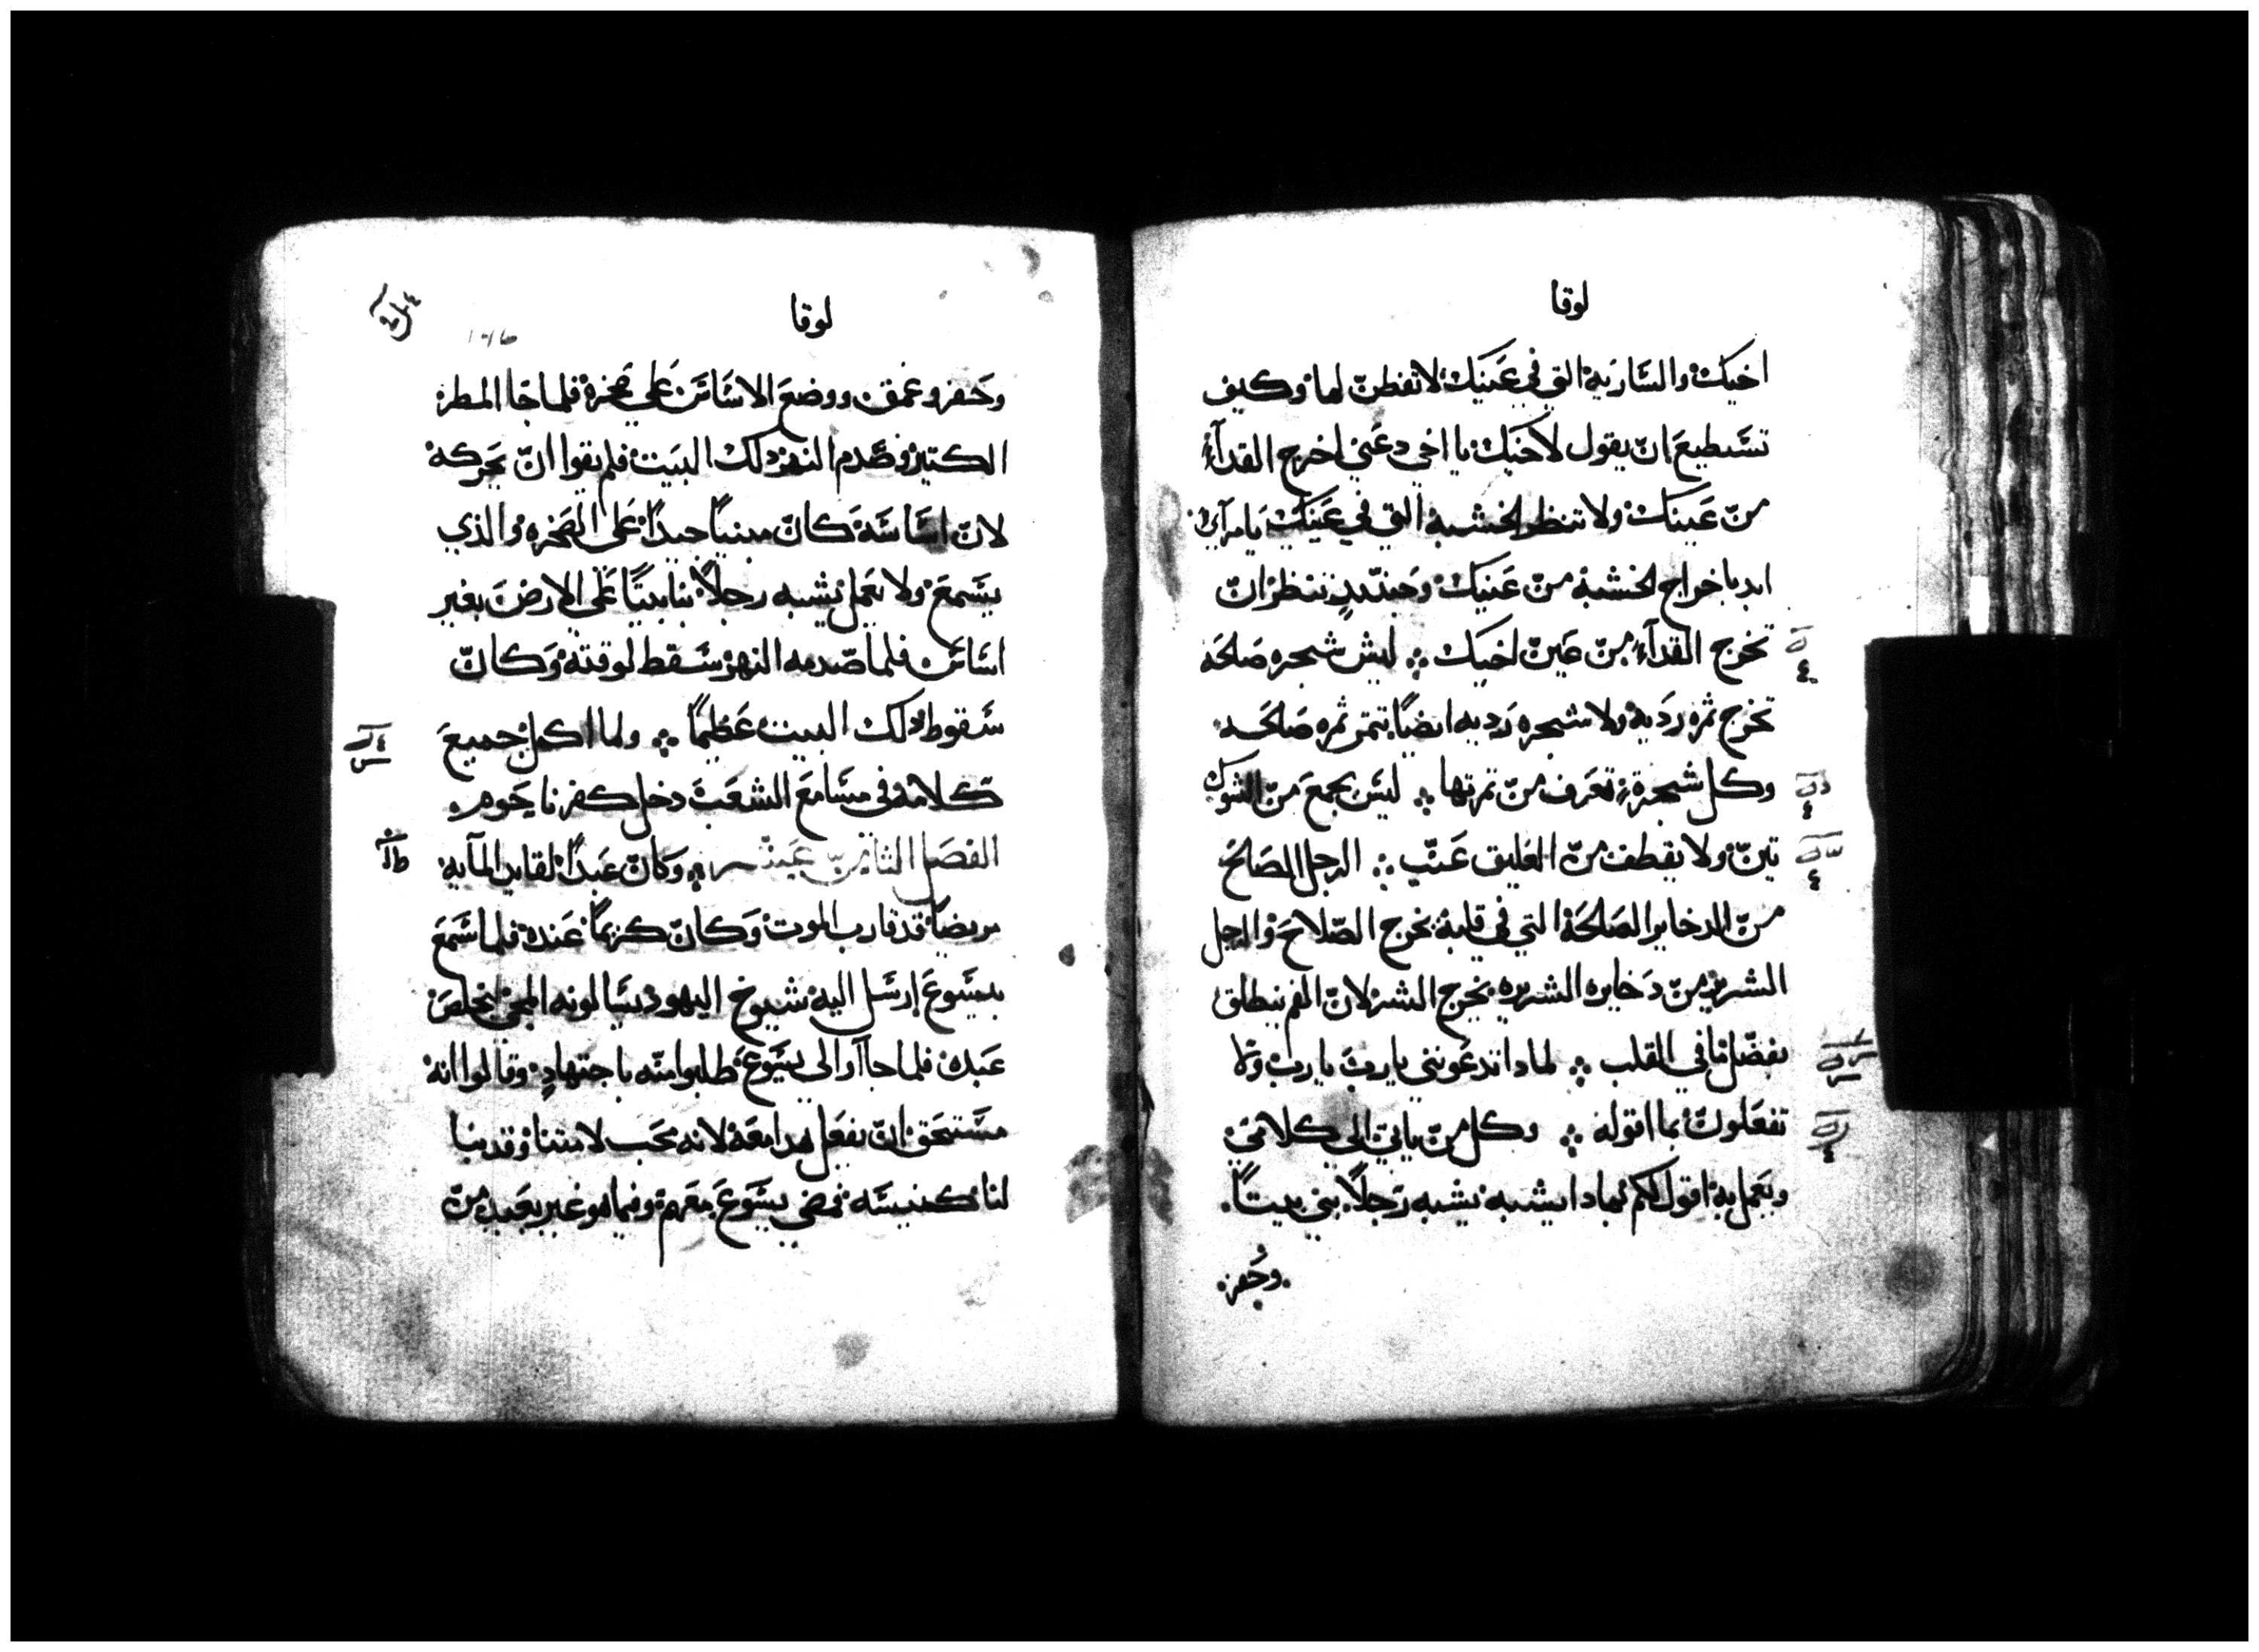 لوقا
اخيك والساريه التي في عينيك لا تفطن لها وكيف
تستطيع ان يقول لاخيك يا اخي دعني اخرج القدآء
من عينك ولا تنظر الخشبه التي في عينيك يا مرآي
ابدا باخراج الخشبه من عينيك وحينيدٍ تنظر ان
تخرج القدآء من عين اخيك ليس شجره صالحه
تخرج ثمره رديه ولا شجره رديه ايضاً تتمر ثمره صالحه
وكل شجرة تعرف من تمرتها ليس يجمع من الشوك
تين ولا يقطف من العليق عنب الرجل الصالح
من الدخاير الصالحة التي في قلبه يخرج الصلاح والرجل
الشرير من دخايره الشريره يخرج الشر لان الفم ينطلق
بفضل ما في القلب لمادا تدعونني يا رب يا رب ولا
تفعلون بما اقوله وكل من ياتي الي كلامي
ويعمل به اقول لكم بمادا يشبه يشبه رجلاً بني بيتاً
وحفر
لوقا
وحفر وعمق ووضع الاساس علي صخرة فلما جا المطر
الكتير وصدم النهر دلك البيت فلم يقوا ان يحركه
لان اساسه كان مبنياً جيداً على الصخره والذي
يسمع ولا يعمل يشبه رجلاً بنا بيتاً علي الارض بغير
اساس فلما صدمه النهر سقط لوقته وكان
سقوط دلك البيت عظيماً ولما اكمل جميع
كلامه في مسامع الشعب دخل كفرناحوم
الفصل الثاني عشر وكان عبداً لقايد المآيه
مريضاً قد قارب الموت وكان كريماً عنده فلما سمع
بيسوع ارسل اليه شيوخ اليهود يسالونه المجي ليخلص
عبده فلما جاآوا الي يسوع طلبوا منه باجتهادٍ وقالوا انه
مستحق ان يفعل هدا معه لانه يحب لامتنا وقد بنا
لنا كنيسه فمضي يسوع معهم وفيما هو غير بعيد من